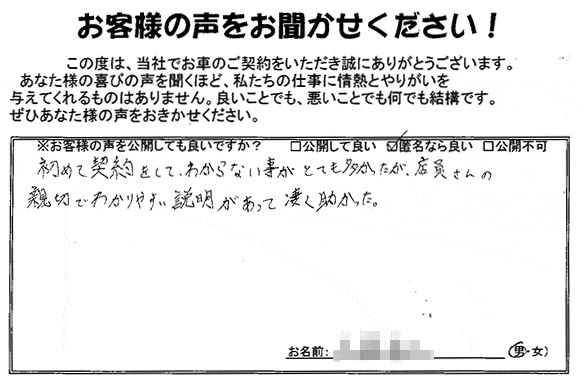 お客様の声をお聞かせください！
この度は、当社でお車のご契約をいただき誠にありがとうございます。
あなた様の喜びの声を聞くほど、私たちの仕事に情熱とやりがいを
与えてくれるものはありません。良いことでも、悪いことでも何でも結構です。
ぜひあなた様の声をおきかせください。
※お客様の声を公開しても良いですか？ □公開して良い ☑匿名なら良い □公開不可
初めて契約をして、わからない事がとても多かったが、店員さんの
親切でわかりやすい説明があって凄く助かった。
お名前: （男・女）